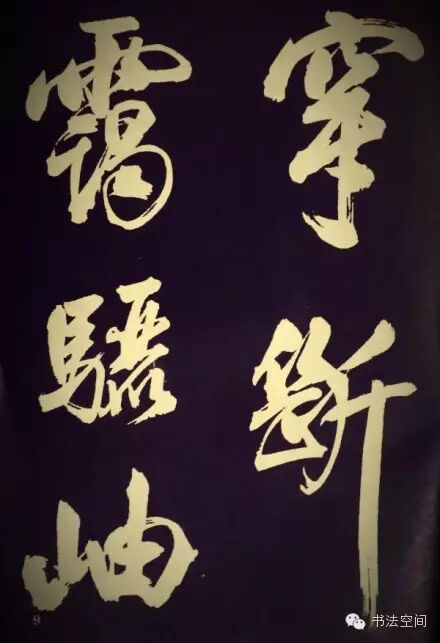 穿斷
靄驪岫
9
书法空间